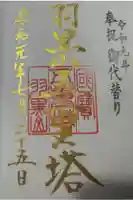 奉祝御代替り
令和元年
羽黒山五重塔
國寶
羽黒山
令和元年七月二十五日